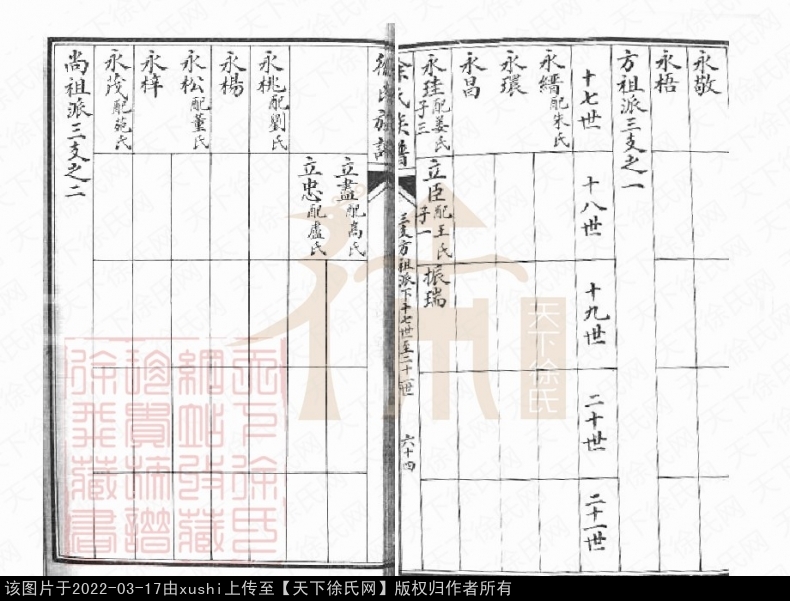 永敬
永梧
方祖派三支之一
十七世
十八世
十九世
二十世
二十一世
永縉配朱氏
永環
永昌
永珪配姜氏
子三
立臣配王氏
子一
振瑞
徐氏族譜
三支方祖派下十七世至二十一世
六十四
立盡配高氏
立忠配盧氏
永桃配劉氏
永楊
永松配董氏
永梓
永茂配苑氏
尚祖派三支之二
天下徐氏
天下徐氏
網站收藏
珍貴族譜
徐飛藏書
该图片于2022-03-17由xushi上传至【天下徐氏网】版权归作者所有